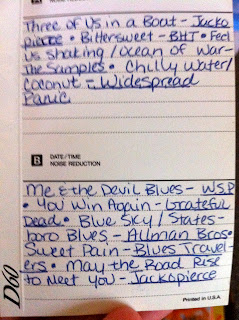 NOISE REDUCTION
Three of Us in a Boat - Jacko
pierce • Bittersweet - BHT • Feel
us shaking/Ocean of War -
The Samples • Chilly Water/
Coconut - Widespread
Panic
B DATE/TIME
NOISE REDUCTION
Me & the Devil Blues - WSP
• You Win Again - Grateful
Dead • Blue Sky/States-
boro Blues - Allman Bros •
Sweet Pain - Blues Travel-
ers • May the Road Rise
to Meet You - Jackopierce
Printed in U.S.A.
D60